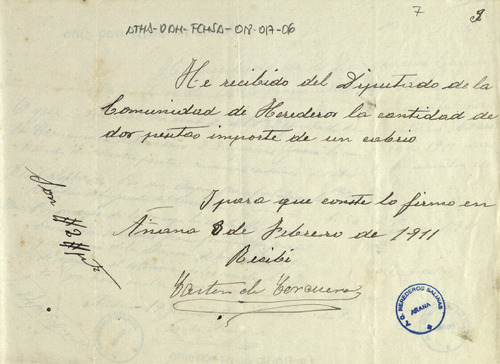 ATHA-DAH-FCHSA-018-017-06
7
He recibido del Diputado de la
Comunidad de Herederos la cantidad de
dos pesetas importe de un cabrio
Y para que conste lo firmo en
Añana 8 de Febrero de 1911
Recibí
Son #2# pts
HEREDEROS SALINAS
AÑANA